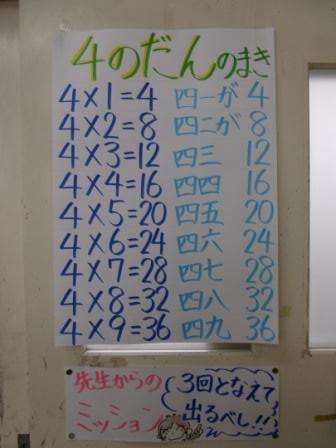 4のだんのまき
4×1=4 四一が 4
4×2=8 四二が 8
4×3=12 四三 12
4×4=16 四四 16
4×5=20 四五 20
4×6=24 四六 24
4×7=28 四七 28
4×8=32 四八 32
4×9=36 四九 36
先生からの
ミッション
3回となえて
出るべし!!